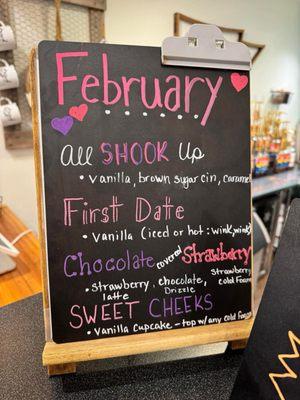 February
all SHOOK Up
• vanilla, brown sugar cin, caramel
First Date
• Vanilla (iced or hot :wink,wink)
Chocolate covered Strawberry
• strawberry, chocolate, Strawberry
latte Drizzle cold Foam
SWEET CHEEKS
• Vanilla Cupcake - top w/ any cold Foam